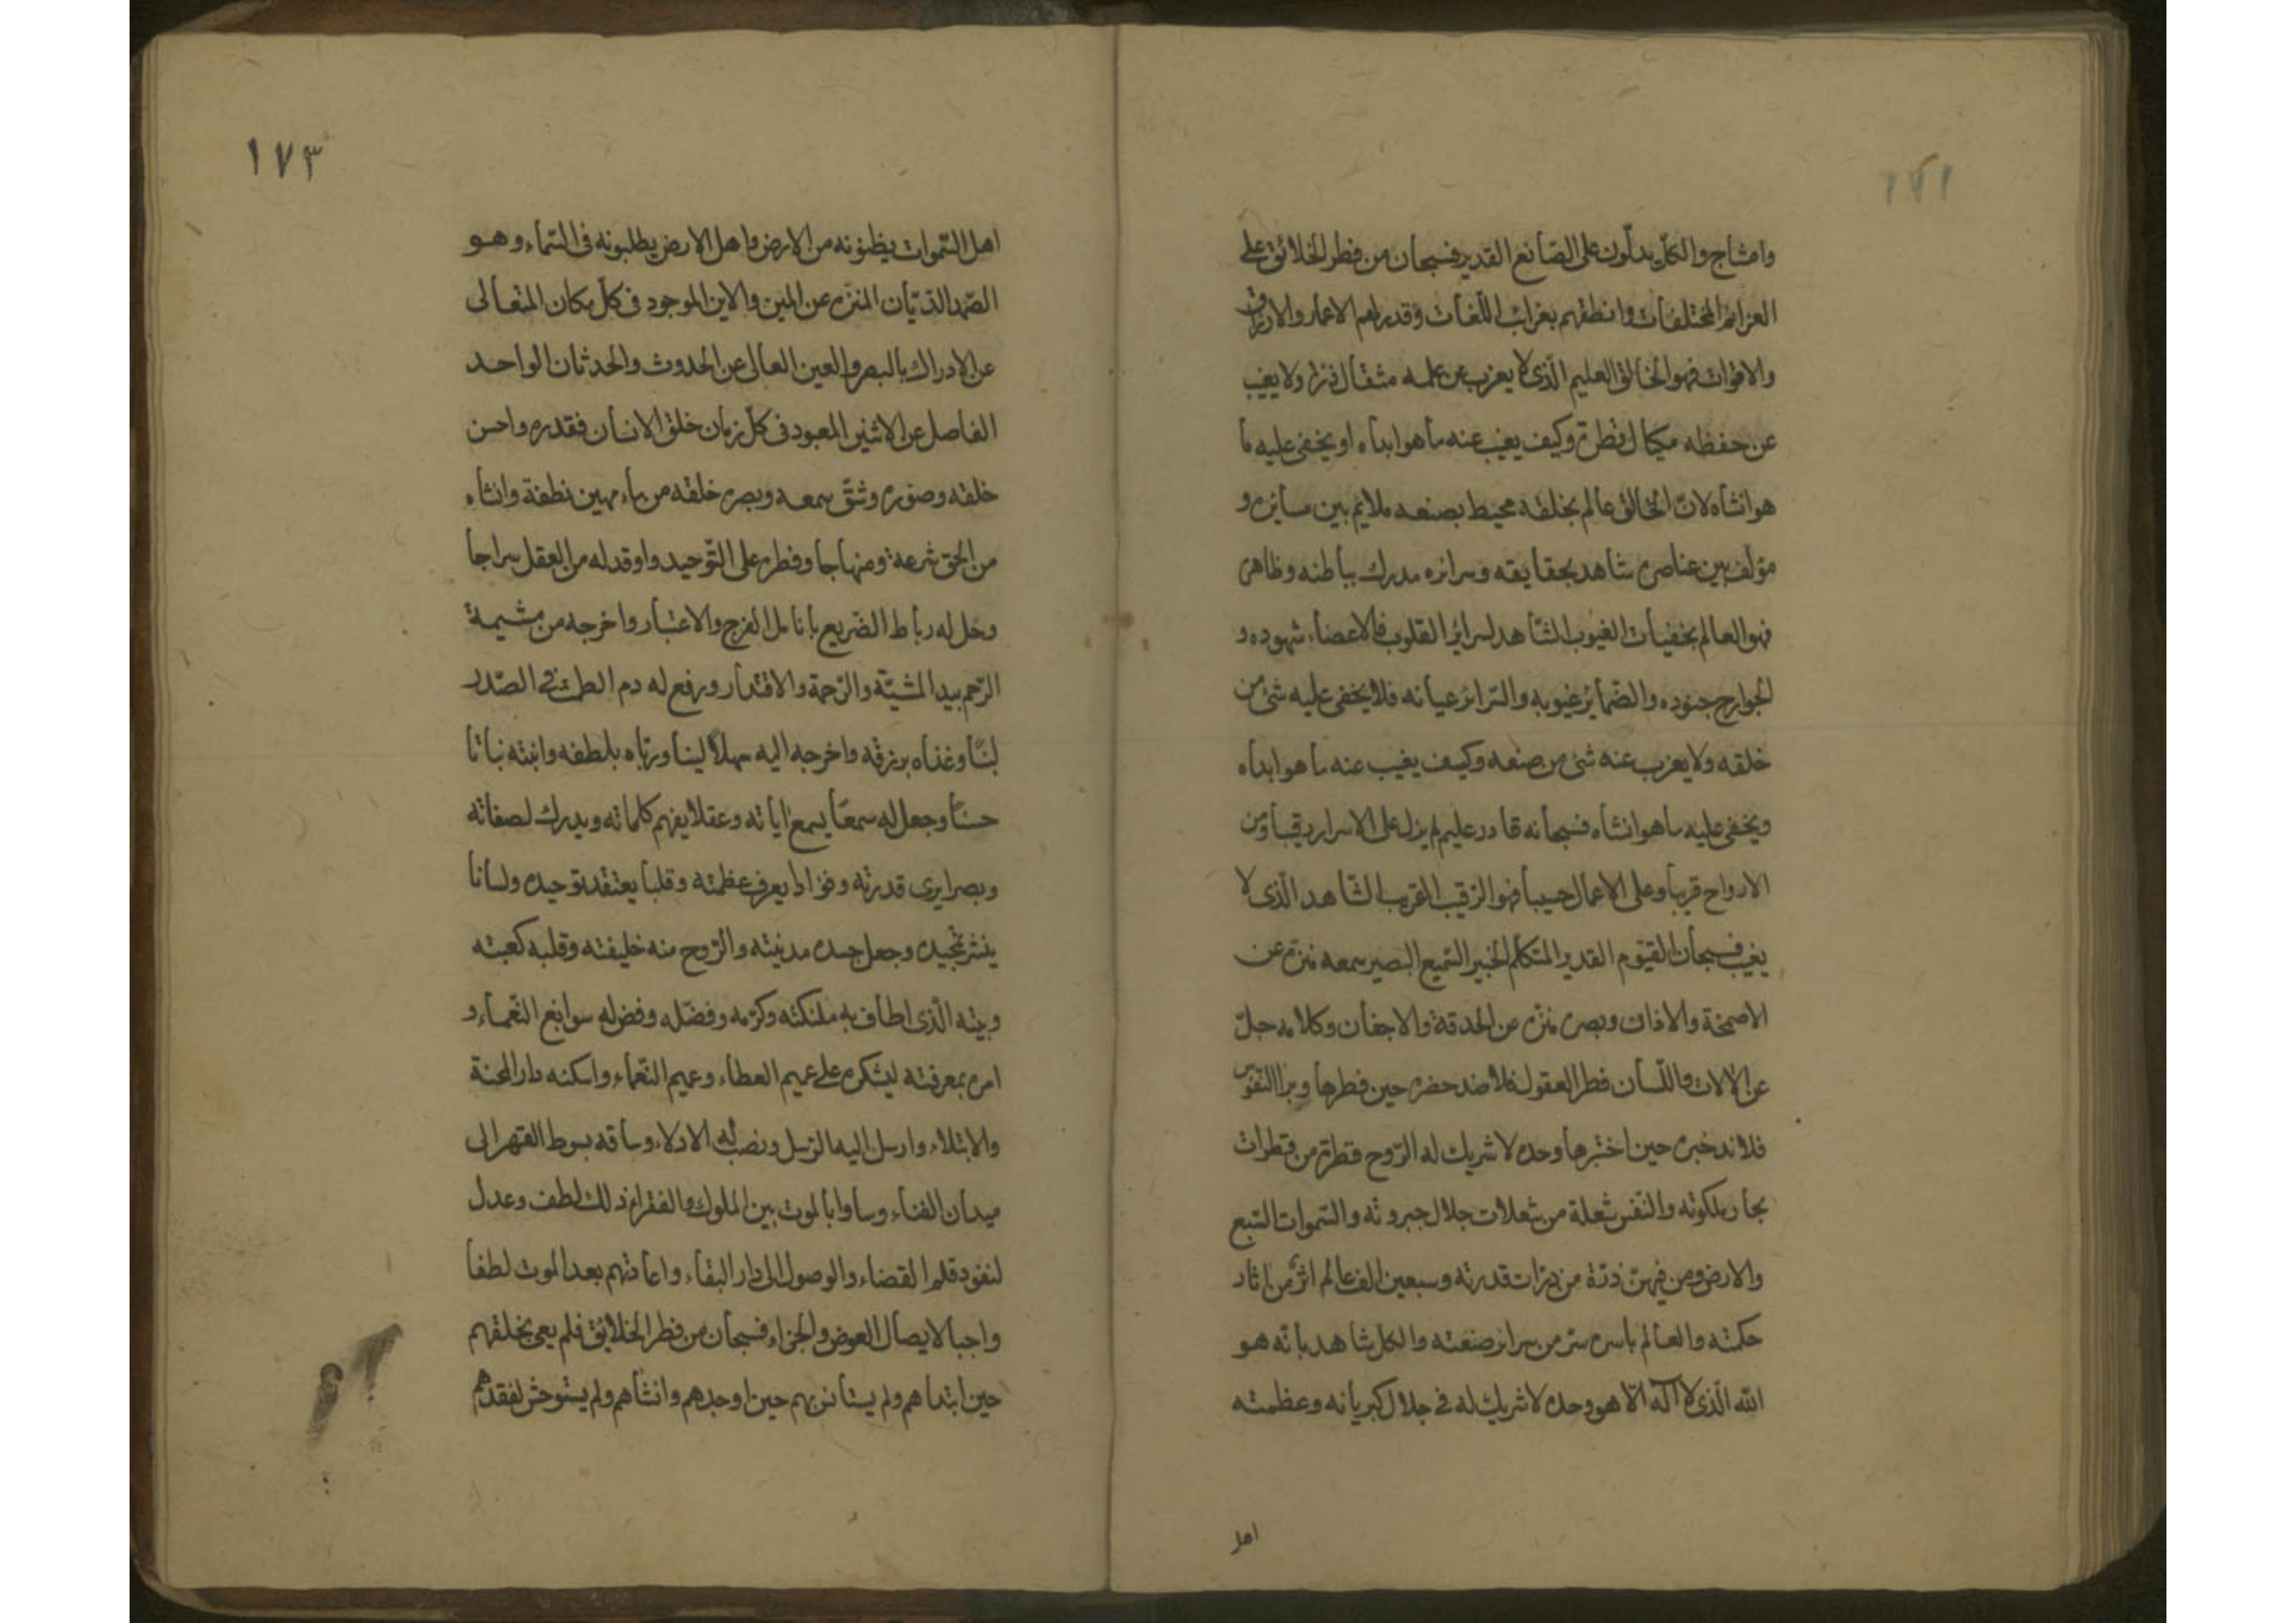 ١٧٢
وامشاج والكلّ يدلّون على الصّانع القدير فسبحان من فطر الخلائق على
العزائم المختلفات وانطقهم بغرائب اللّغات وقدر لهم الاعمار والارزاق
والاقوات فهو الخالق العليم الّذى لا يعزب عن علمه مثقال ذرة ولا يغيب
عن حفظه مكيال قطرة وكيف يغيب عنه ما هو ابداه او يخفى عليه ما
هو انشاه لانّ الخالق عالم بخلقه محيط بصنعه ملايم بين مسايره و
مؤلف بين عناصره شاهد بحقايقه وسرائره مدرك بباطنه وظاهره
فهو العالم بخفيات الغيوب الشّاهد لسرائر القلوب فالاعضاء شهوده و
الجوارح جنوده والضّمائر غيوبه والسّرائر عيانه فلا يخفى عليه شئ من
خلقه ولا يعزب عنه شئ من صنعه وكيف يغيب عنه ما هو ابداه
ويخفى عليه ما هو انشاه فسبحانه قادر عليم لم يزل على الاسرار رقيبا ومن
الارواح قريبا وعلى الاعمال حسيبا فهو الرّقيب القريب الشّاهد الّذى لا
يغيب فسبحان القيّوم القدير المتكلّم الخبير السّميع البصير سمعه منزه عن
الاصمخة والاذان وبصره منزّه عن الحدقة والاجفان وكلامه جلّ
عن الالات واللّسان فطر العقول فلا ضد حضره حين فطرها وبرا النّفوس
فلا ند خبره حين اختبرها وحده لا شريك له الرّوح قطرة من قطرات
بحار ملكوته والنّفس شعلة من شعلات جلال جبروته والسّموات السّبع
والارض ومن فيهنّ ذرّة من ذرّات قدرته وسبعين الف عالم اثر من اثار
حكمته والعالم باسره سرّ من سرائر صنعته والكل شاهد بانّه هو
الله الّذى لا اله الّا هو وحده لا شريك له فى جلال كبريائه وعظمته
اهل
١٧٣
اهل السّموات يظنونه من الارض واهل الارض يطلبونه فى السّماء وهو
الصّمد الدّيّان المنزّه عن المين والاين الموجود فى كلّ مكان المتعالى
عن الادراك بالبصر والعين العالى عن الحدوث والحدثان الواحد
الفاصل عن الاثنين المعبود فى كلّ زمان خلق الانسان فقدره واحسن
خلقه وصوره وشقّ سمعه وبصره خلقه من ماء مهين نطفة وانشاه
من الحق شرعة ومنهاجا وفطره على التّوحيد واوقد له من العقل سراجا
وحل له رباط الضريع بانامل الفرج والاعتبار واخرجه من مشيمة
الرّحم بيد المشيّة والرّحمة والاقتدار ورفع له دم الطمث فى الصّدر
لبنًا وغذاه برزقه واخرجه اليه سهلًا لينا وربّاه بلطفه وانبته نباتا
حسنًا وجعل له سمعًا يسمع اياته وعقلا يفهم كلماته ويدرك لصفاته
وبصرا يرى قدرته وفؤادا يعرف عظمته وقلبا يعتقد توحيده ولسانا
ينشر تمجيده وجعل جسده مدينته والرّوح منه خليفته وقلبه كعبته
وبيته الّذى اطاف به ملئكته وكرّمه وفضّله وفض له سوابغ النّعماء و
امره بمعرفته ليشكره على عميم العطاء وعميم النّعماء واسكنه دار المحنة
والابتلاء وارسل اليه الرّسل ونصب له الادلاء وساقه بسوط القهر الى
ميدان الفناء وساوا بالموت بين الملوك والفقراء ذلك لطف وعدل
لنفوذ قلم القضاء والوصول الى دار البقاء واعادتهم بعد الموت لطفا
واجبا لايصال العوض والجزاء فسبحان من فطر الخلائق فلم يعى بخلقهم
حين ابتداهم ولم يستانس بهم حين اوجدهم وانشاهم ولم يستوحش لفقدهم